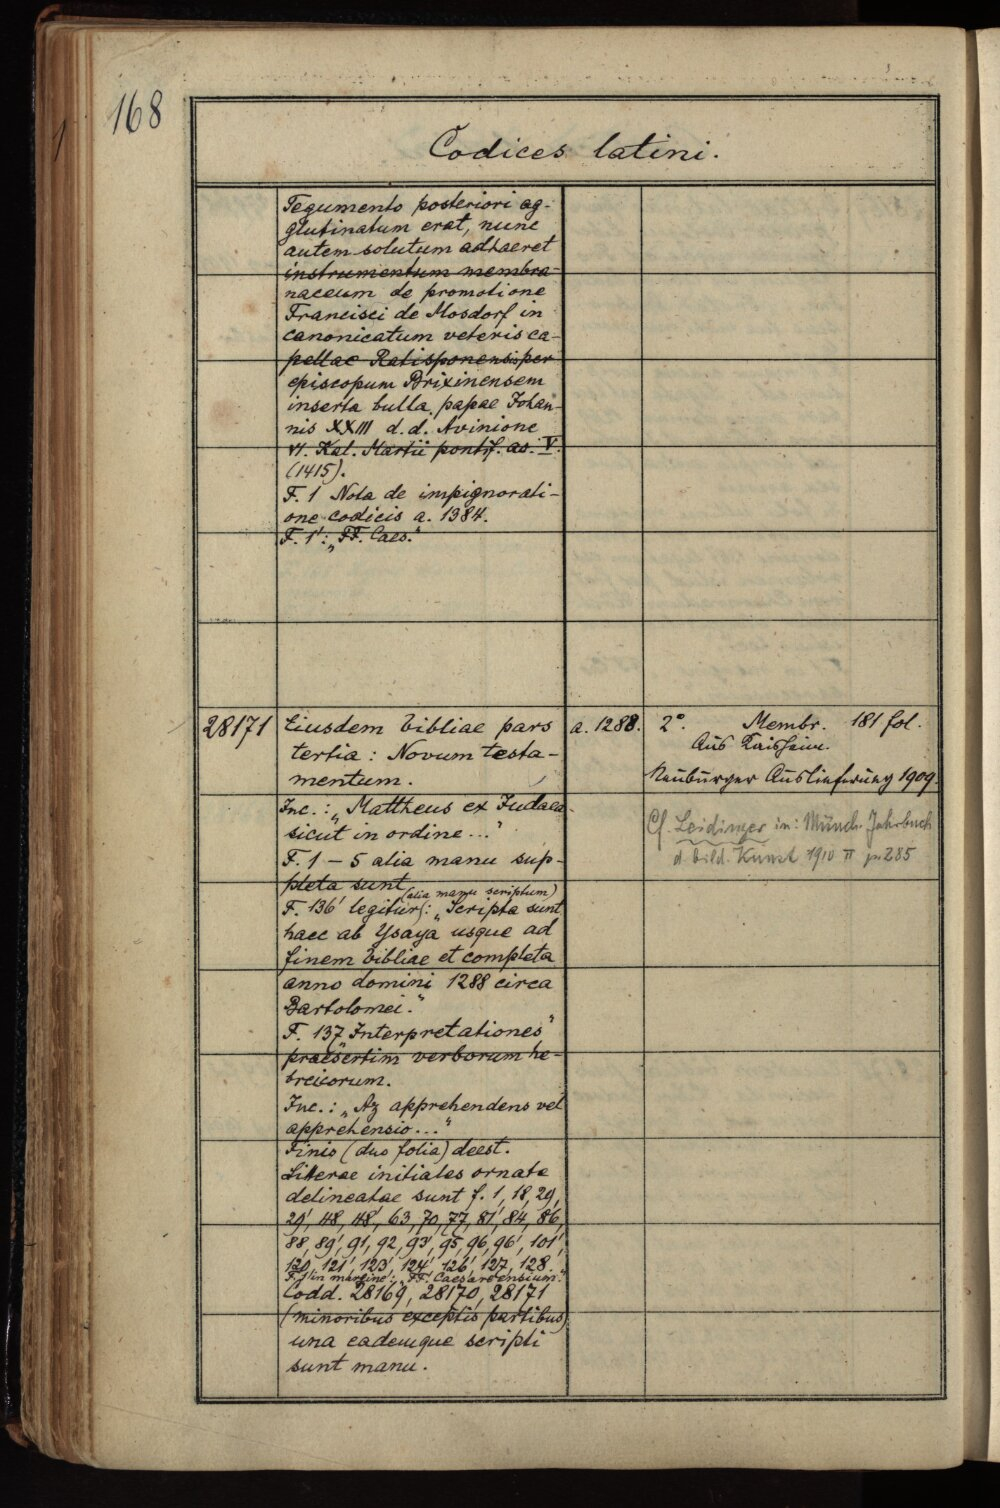 168
Codices latini.
Tegumento posteriori ag-
glutinatum erat, nunc
autem solutum adhaeret
instrumentum membra-
naceum de promotione
Francisci de Mosdorf in
canonicatum veteris ca-
pellae Ratisponensis per
episcopum Brixinensem
inserta bulla papae Johan-
nis XXIII d. d. Avinione
VI. Kal. Martii pontif. ao. V.
(1415).
F. 1 Nota de impignorati-
one codicis a. 1384.
F. 1': „FF. Caes."
28171 Eiusdem bibliae pars a. 1288. 2° Membr. 181 fol.
tertia: Novum testa- Aus Kaisheim.
mentum. Neuburger Auslieferung 1909.
Inc.: „Mattheus ex Judaea
sicut in ordine..." Cf. Leidinger in: Münch. Jahrbuch
F. 1 – 5 alia manu sup- d. bild. Kunst 1910 II p. 285
pleta sunt
(alia manu scriptum)
F. 136' legitur: „Scripta sunt
haec ab Ysaya usque ad
finem bibliae et completa
anno domini 1288 circa
Bartolomei."
F. 137 „Interpretationes"
praesertim verborum he-
breicorum.
Inc.: „Az apprehendens vel
apprehensio..."
Finis (duo folia) deest.
Literae initiales ornate
delineatae sunt f. 1, 18, 29,
29', 48, 48', 63, 70, 77, 81', 84, 86,
88, 89', 91, 92, 93', 95, 96, 96', 101',
120, 121', 123', 124' 126', 127, 128.
F. 1' in margine: „FF. Caesareensium."
Codd. 28169, 28170, 28171
(minoribus exceptis partibus)
una eademque scripti
sunt manu.